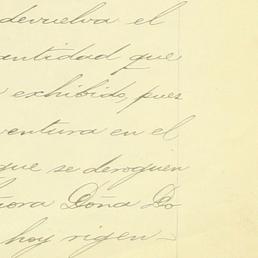 devuelva el
antidad que
exhibido, pues
ventura en el
que se deroguen
ñora Doña Do
hoy rigen-